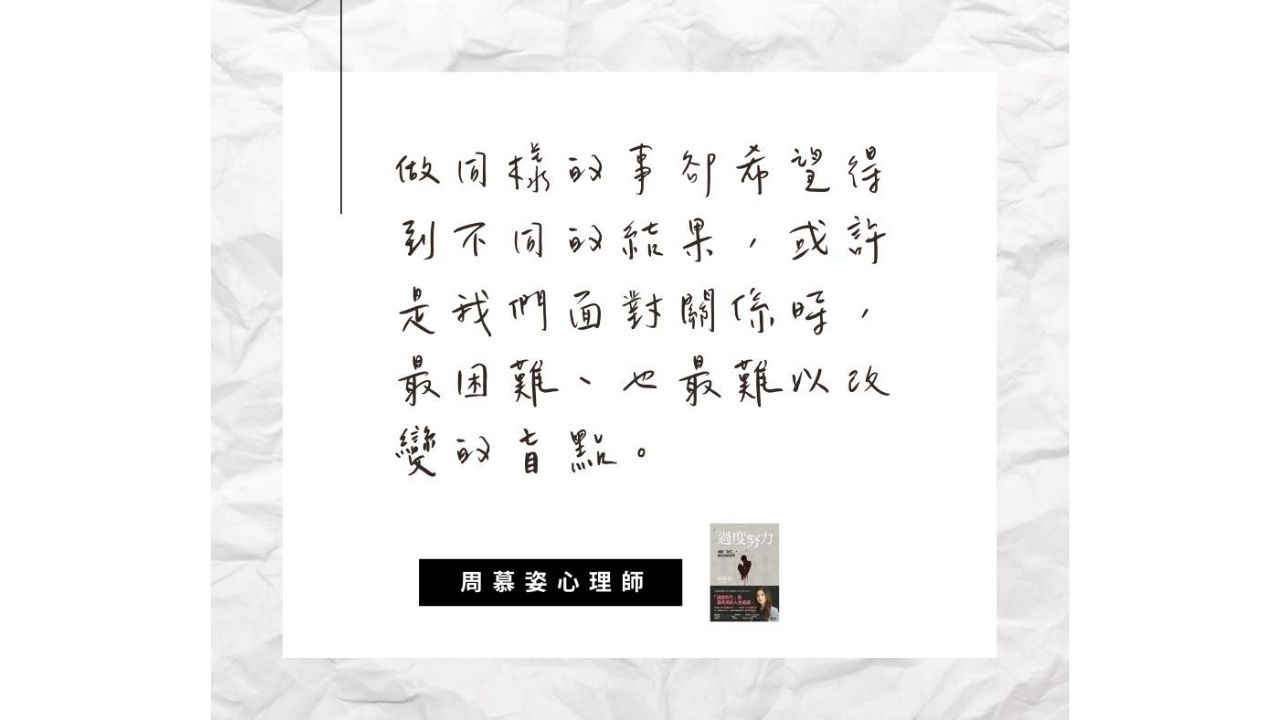 做同樣的事卻希望得
到不同的結果，或許
是我們面對關係時，
最困難、也最難以改
變的盲點。
周慕姿心理師
過度努力